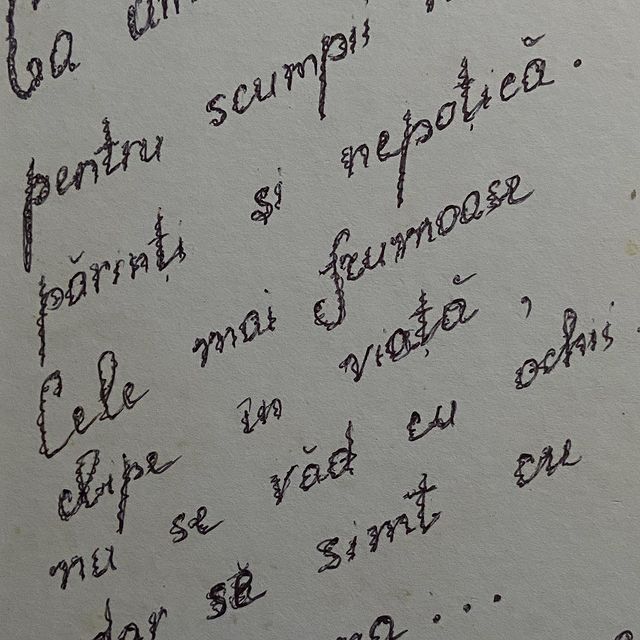 La
pentru scumpii
părinți si nepoțică.
Cele mai frumoase
clipe în viață,
nu se văd cu ochii
dar se simt cu